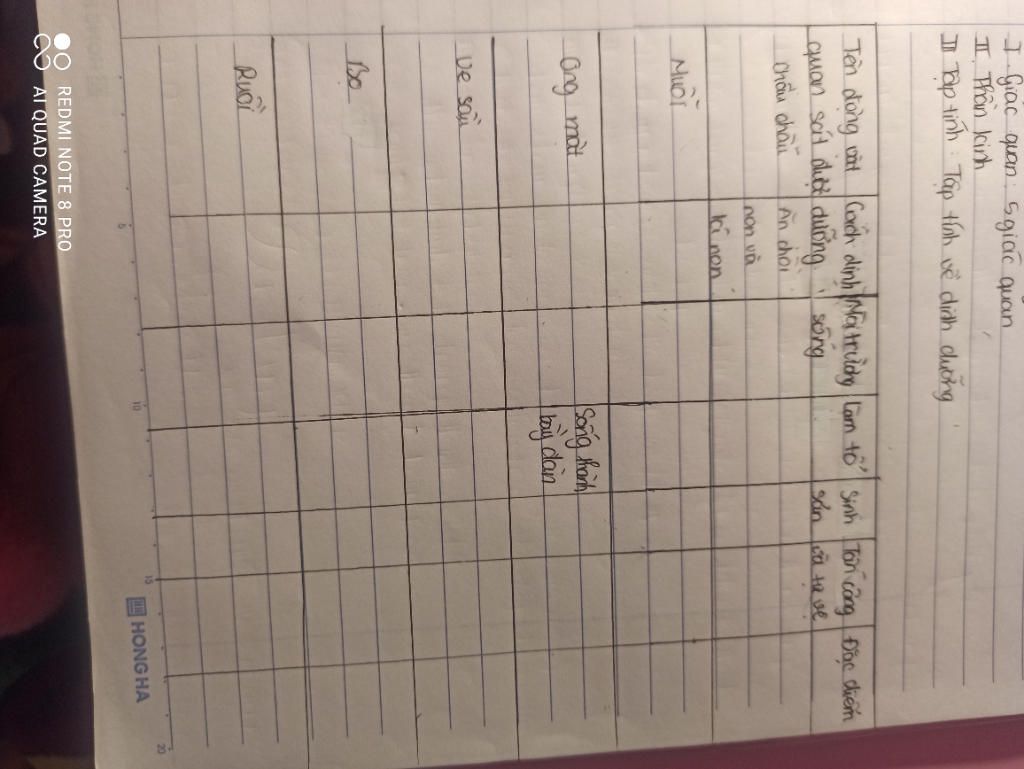 I. Giác quan: 5 giác quan
II. Thần kinh
III Tập tính: Tập tính về dinh dưỡng
Tên động vật quan sát được
Cách dinh dưỡng
Môi trường sống
Làm tổ
Sinh sản
Tấn công và tự vệ
Đặc điểm
Châu chấu
Ăn chồi non và lá non
Muỗi
Ong mật
Sống thành bầy đàn
Ve sầu
Bọ
Ruồi
5
10
15
20
HONG HA
REDMI NOTE 8 PRO
AI QUAD CAMERA